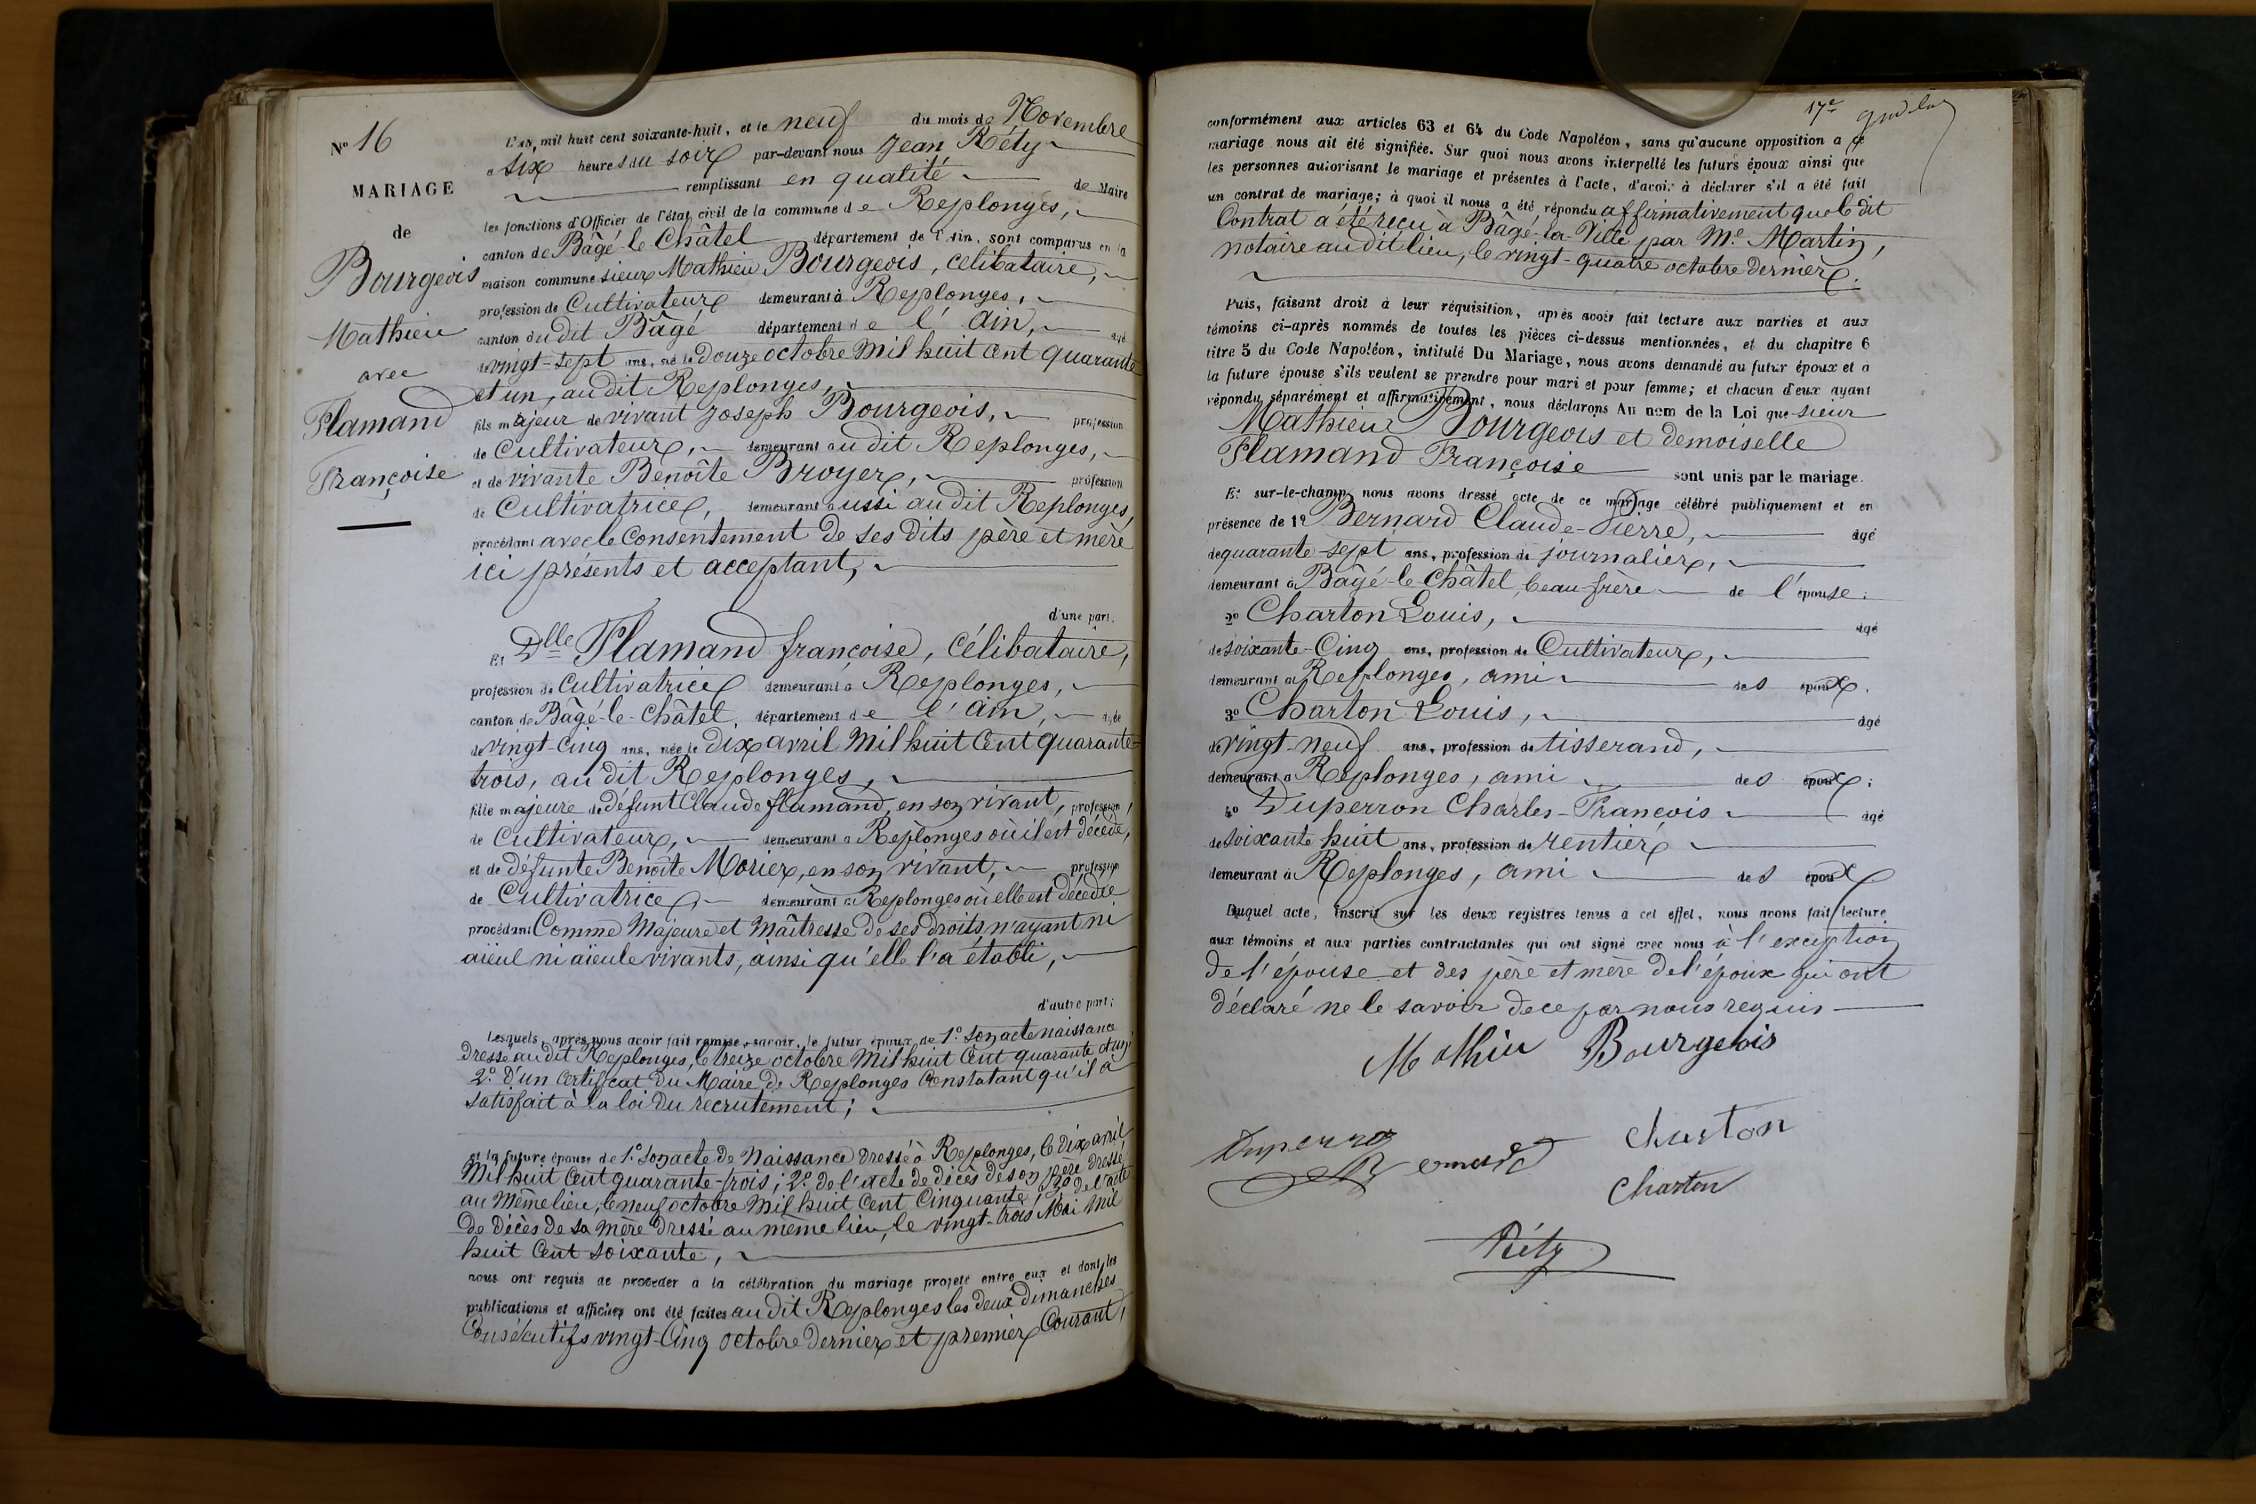 N° 16
MARIAGE
de
Bourgeois
Mathieu
avec
Flamand
Françoise
L'an mil huit cent soixante-huit, et le neuf du mois de Novembre
à six heures du soir par-devant nous Jean Réty
remplissant en qualité de Maire
les fonctions d'Officier de l'état civil de la commune de Replonges,
canton de Bâgé-le-Châtel département de l'Ain, sont comparus en la
maison commune sieur Mathieu Bourgeois, célibataire,
profession de Cultivateur demeurant à Replonges,
canton du dit Bâgé département de l'Ain, agé
de vingt-sept ans, né le douze octobre Mil huit cent quarante
et un, au dit Replonges,
fils majeur de vivant Joseph Bourgeois, profession
de Cultivateur, demeurant au dit Replonges,
et de vivante Benoîte Broyer, profession
de Cultivatrice, demeurant aussi au dit Replonges,
procédant avec le Consentement de ses dits père et mère
ici présents et acceptant,
d'une part.
Et Dlle Flamand françoise, Célibataire,
profession de Cultivatrice demeurant à Replonges,
canton de Bâgé-le-Châtel, département de l'Ain, agée
de vingt-cinq ans, née le dix avril Mil huit Cent quarante-
trois, au dit Replonges,
fille majeure de défunt Claude flamand, en son vivant, profession
de Cultivateur, demeurant à Replonges où il est décédé,
et de défunte Benoîte Morier, en son vivant, profession
de Cultivatrice, demeurant à Replonges où elle est décédée
procédant Comme Majeure et Maîtresse de ses droits n'ayant ni
aïeul ni aïeule vivants, ainsi qu'elle l'a établi,
d'autre part;
Lesquels, après nous avoir fait remise, savoir, le futur époux, de 1° son acte naissance
dressé au dit Replonges, le treize octobre Mil huit Cent quarante et un;
2° d'un certificat du Maire de Replonges Constatant qu'il a
satisfait à la loi du recrutement;
et la future épouse de 1° son acte de Naissance dressé à Replonges, le dix avril
Mil huit Cent quarante-trois; 2° de l'acte de décès de son père dressé
au même lieu, le neuf octobre Mil huit Cent Cinquante; 3° de l'acte
de décès de sa mère dressé au même lieu, le vingt-trois Mai Mil
huit Cent soixante,
nous ont requis de procéder à la célébration du mariage projeté entre eux et dont les
publications et affiches ont été faites au dit Replonges les deux dimanches
Consécutifs vingt-cinq octobre dernier et premier Courant,
17e
conformément aux articles 63 et 64 du Code Napoléon, sans qu'aucune opposition a ce
mariage nous ait été signifiée. Sur quoi nous avons interpellé les futurs époux ainsi que
les personnes autorisant le mariage et présentes à l'acte, d'avoir à déclarer s'il a été fait
un contrat de mariage; à quoi il nous a été répondu affirmativement que le dit
Contrat a été reçu à Bâgé-la-Ville par Me Martin,
notaire au dit lieu, le vingt-quatre octobre dernier.
Puis, faisant droit à leur réquisition, après avoir fait lecture aux parties et aux
témoins ci-après nommés de toutes les pièces ci-dessus mentionnées, et du chapitre 6
titre 5 du Code Napoléon, intitulé Du Mariage, nous avons demandé au futur époux et a
la future épouse s'ils veulent se prendre pour mari et pour femme; et chacun d'eux ayant
répondu séparément et affirmativement, nous déclarons Au nom de la Loi que sieur
Mathieu Bourgeois et demoiselle
Flamand Françoise sont unis par le mariage.
Et sur-le-champ, nous avons dressé acte de ce mariage célébré publiquement et en
présence de 1° Bernard Claude-Pierre, agé
de quarante-sept ans, profession de journalier,
demeurant à Bâgé-le-Châtel, beau-frère de l'épouse.
2° Charton Louis, agé
de soixante-Cinq ans, profession de Cultivateur,
demeurant à Replonges, ami des époux.
3° Charton Louis, agé
de vingt-neuf ans, profession de tisserand,
demeurant à Replonges, ami des époux;
4° Duperron Charles-François agé
de soixante huit ans, profession de rentier
demeurant à Replonges, ami des époux
Duquel acte, inscrit sur les deux registres tenus a cet effet, nous avons fait lecture
aux témoins et aux parties contractantes qui ont signé avec nous à l'exception
de l'épouse et des père et mère de l'époux qui ont
déclaré ne le savoir de ce par nous requis
Mathieu Bourgeois
Duperron
Bernard
Charton
Charton
Réty